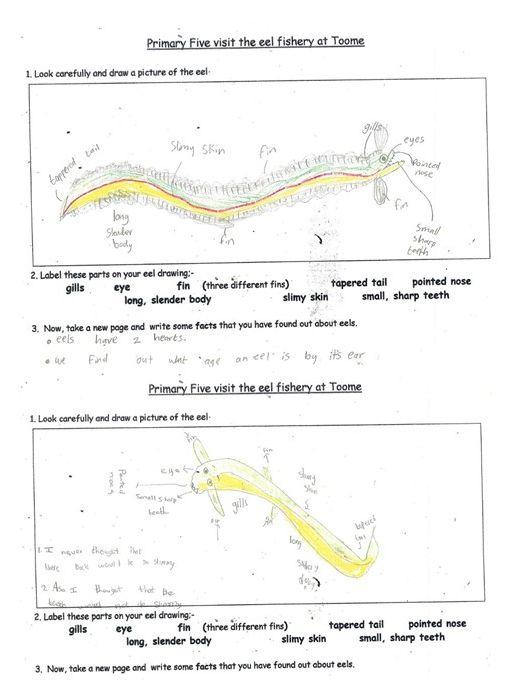 Primary Five visit the eel fishery at Toome
1. Look carefully and draw a picture of the eel.
gills
eyes
tappered tail
Slimy Skin
fin
Pointed nose
fin
long
Slender
body
fin
Small
sharp
teeth
2. Label these parts on your eel drawing:-
gills eye fin (three different fins) tapered tail pointed nose
long, slender body slimy skin small, sharp teeth
3. Now, take a new page and write some facts that you have found out about eels.
eels have 2 hearts.
we find out what age an eel is by its ear
Primary Five visit the eel fishery at Toome
1. Look carefully and draw a picture of the eel.
fin
fin
eye
Pointed nose
Small sharp
teeth
gills
slimy
skin
fin
fin
long
1. I never thought that
there back would be so slimmy
2. Also I thought that the
teeth
2. Label these parts on your eel drawing:-
gills eye fin (three different fins) tapered tail pointed nose
long, slender body slimy skin small, sharp teeth
3. Now, take a new page and write some facts that you have found out about eels.